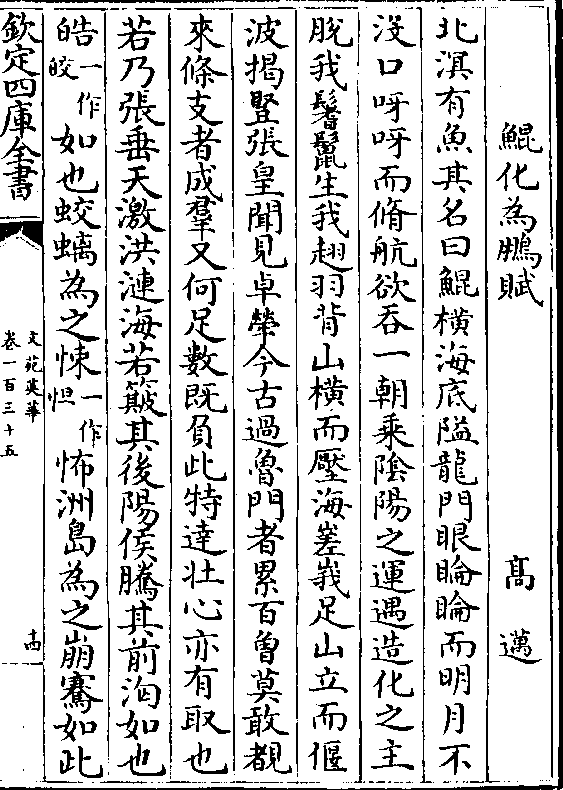 鯤化為鵬賦　高邁
北溟有魚其名曰鯤橫海底隘龍門眼睔睔而明月不
沒口呀呀而脩航欲吞一朝乘陰陽之運遇造化之主
脫我鬐鬛生我翅羽背山橫而壓海嵳峩足山立而偃
波揭豎張皇聞見卓犖今古過魯門者累百曾莫敢覩
來條支者成羣又何足數既負此特達壯心亦有取也
若乃張垂天激洪漣海若簸其後陽侯騰其前洶如也
皓一作皎如也蛟螭為之悚一作怛怖洲島為之崩騫如此
欽定四庫全書
文苑英華
卷一百三十五
十四